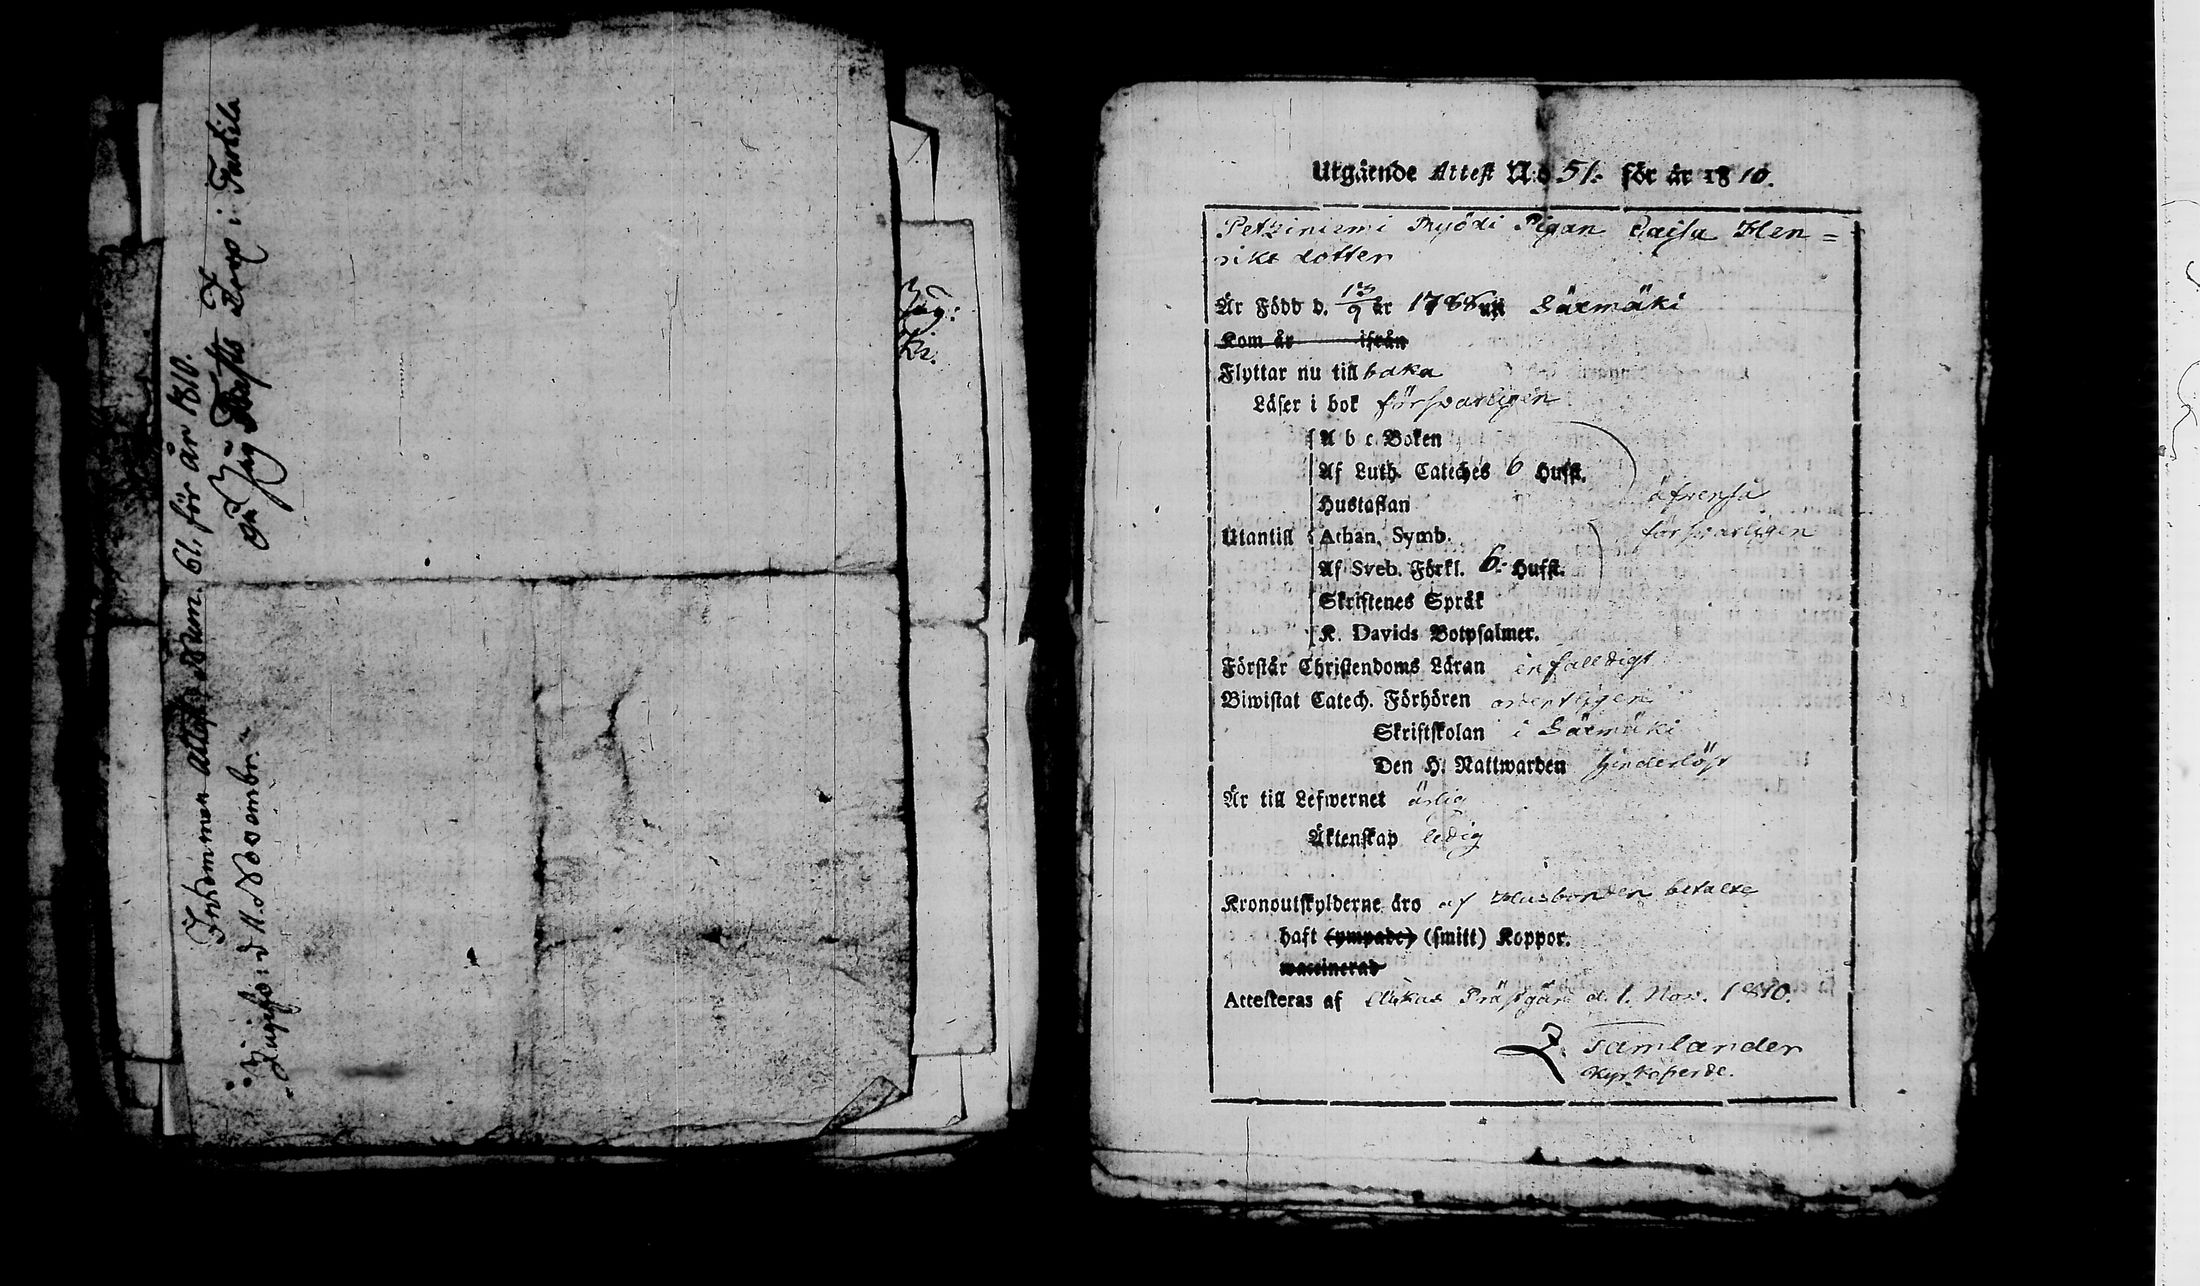 Inkommen attest Num. 61. för år 1810.
d. 11. November.
Jäg:
Kr.
Utgående Attest N:o 51. för år 1810.
Petziniemi Ryödi Pigan Caisa Hen=
riks dotter
Är Född d. 13/9 år 1788 uti Säxmäki
Kom år ifrån
Flyttar nu till baka
Läser i bok försvarligen
A b c Boken
Af Luth. Cateches 6 Hufst.
Hustaflan
äfvenså
Utantill Athan. Symb.
försvarligen
Af Sveb. Förkl. 6. Hufst.
Skriftenes Språk
K. Davids Botpsalmer.
Förstår Christendoms Läran enfalldigt
Biwistat Catech. Förhören ordentligen
Skriftskolan i Säxmäki
Den H. Nattwarden hinderlöst
Är till Lefwernet ärlig
Äktenskap ledig
Kronoutskylderne äro af Husbonden betalte
haft (ympade) (smitt) Koppor.
waccinerad
Attesteras af Prästgård d. 1. Nov. 1810.
Tamlander